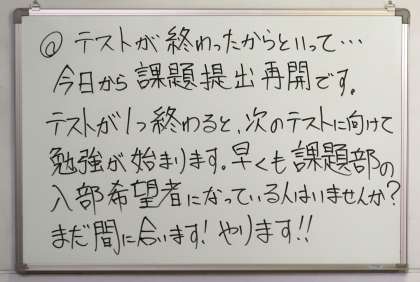 @ テストが終わったからといって…
今日から課題提出再開です。
テストが1つ終わると、次のテストに向けて
勉強が始まります。早くも課題部の
入部希望者になっている人はいませんか?
まだ間に合います!やります!!